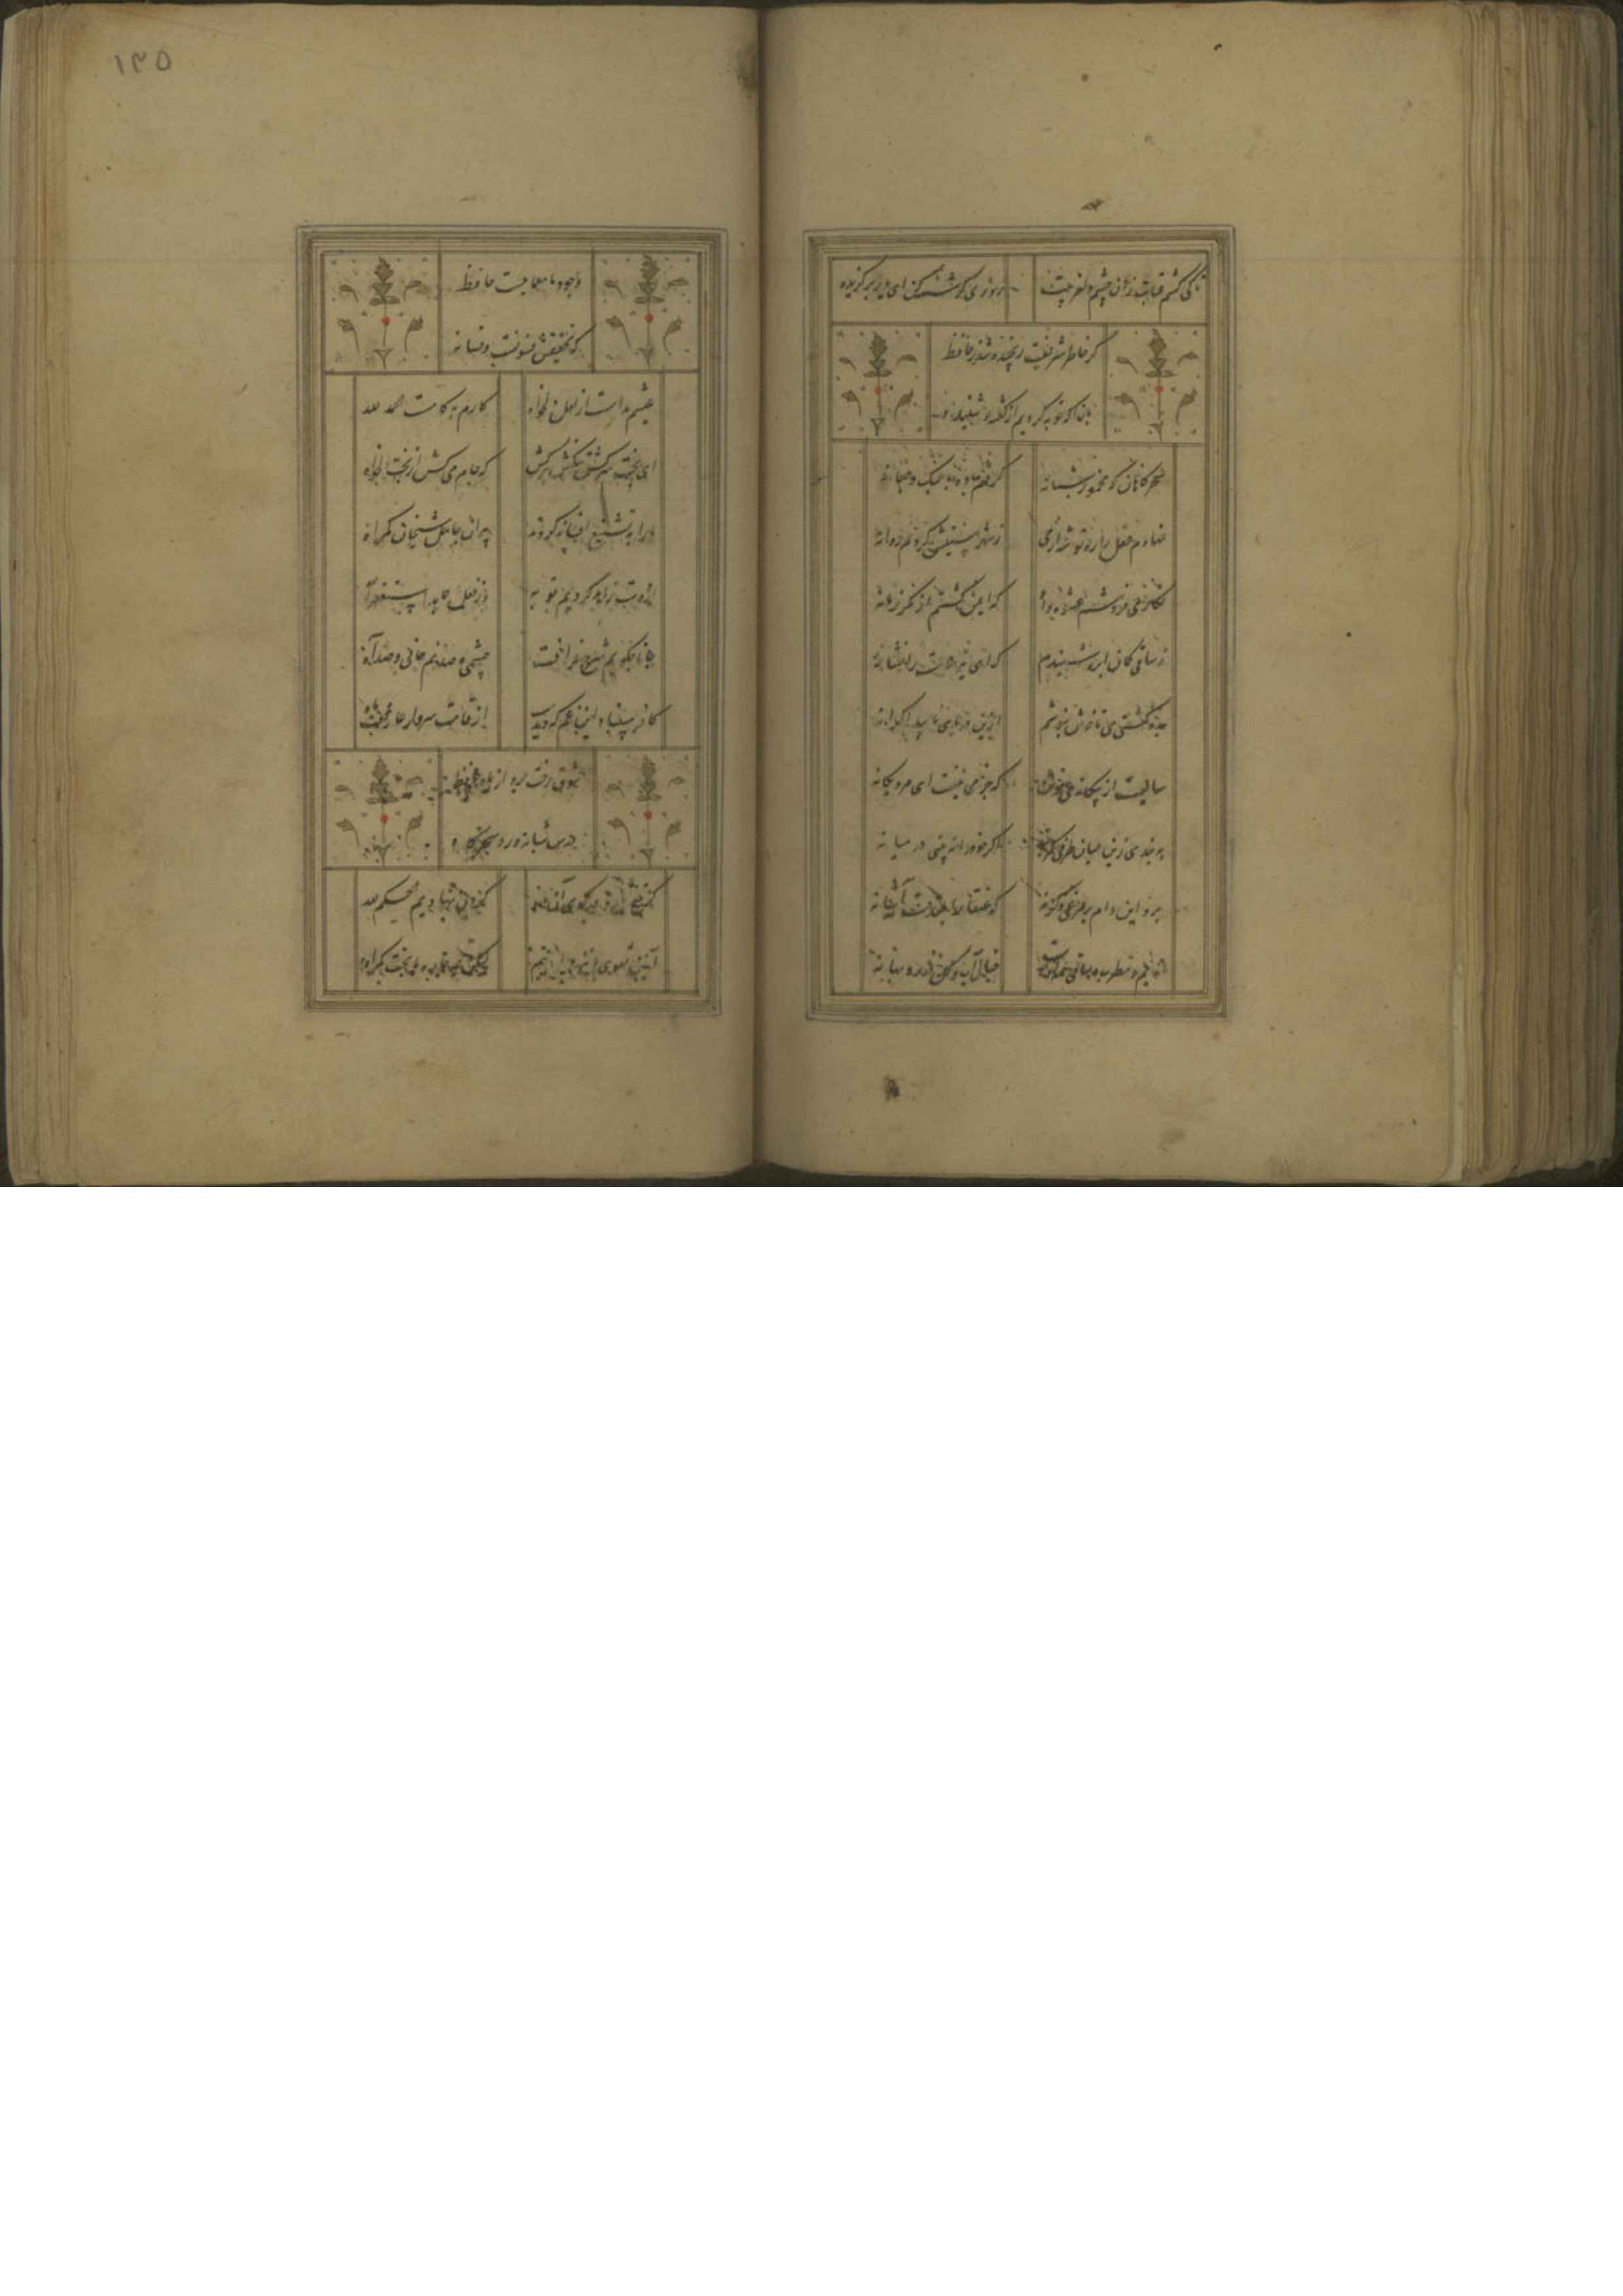 تا کی کشم عتابت زان چشم دلفریبت روزی کرشمه کن ای یار برگزیده
گر خاطر شریفت رنجیده شد ز حافظ
بازآ که توبه کردیم از گفته و شنیده
سحرگاهان که مخمور شبانه گرفتم باده با چنگ و چغانه
نهادم عقل را ره توشه از می ز شهر هستیش کردم روانه
نگار می فروشم عشوه داد که ایمن گشتم از مکر زمانه
ز ساقی کمان ابرو شنیدم که ای تیر ملامت را نشانه
بده کشتی می تا خوش بنوشم ازین دریای ناپیدا کرانه
که جز می نیست ای مرد یگانه
نبندی زین میان طرفی کمروار اگر خود را نه بینی در میانه
برو این دام بر مرغ دگر نه که عنقا را بلندست آشیانه
ندیم و مطرب و ساقی همه اوست خیال آب و گل در ره بهانه
۱۳۵
وجود ما معماییست حافظ
که تحقیقش فسونست و فسانه
عیشم مدامست از لعل دلخواه کارم بکامست الحمد لله
ای بخت سرکش تنگش ببر کش گه جام می کش گه لعل دلخواه
ما را به مستی افسانه کردند پیران جاهل شیخان گمراه
از دست زاهد کردیم توبه وز فعل عابد استغفرالله
جانا چگویم شرح فراقت چشمی و صد نم جانی و صد آه
کافر مبیناد این غم که دیدست از قامتت سرو از عارضت ماه
شوق رخت برد از یاد حافظ
درس شبانه ورد سحرگاه
گر تیغ بارد در کوی آن ماه گردن نهادیم الحکم لله
آیین تقوی ما نیز دانیم لیکن چه چاره با بخت گمراه